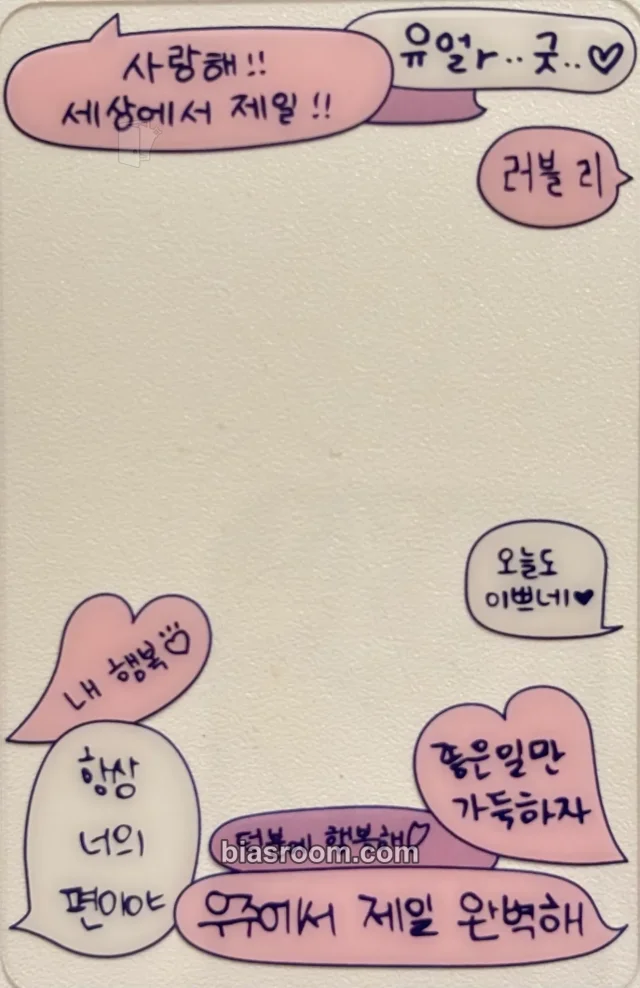 사랑해!!
세상에서 제일!!
유얼r..굿..♡
러블 리
오늘도
이쁘네♥
내 행복♡
항상
너의
편이야
좋은일만
가득하자
덕분에 행복해♡
biasroom.com
우주에서 제일 완벽해